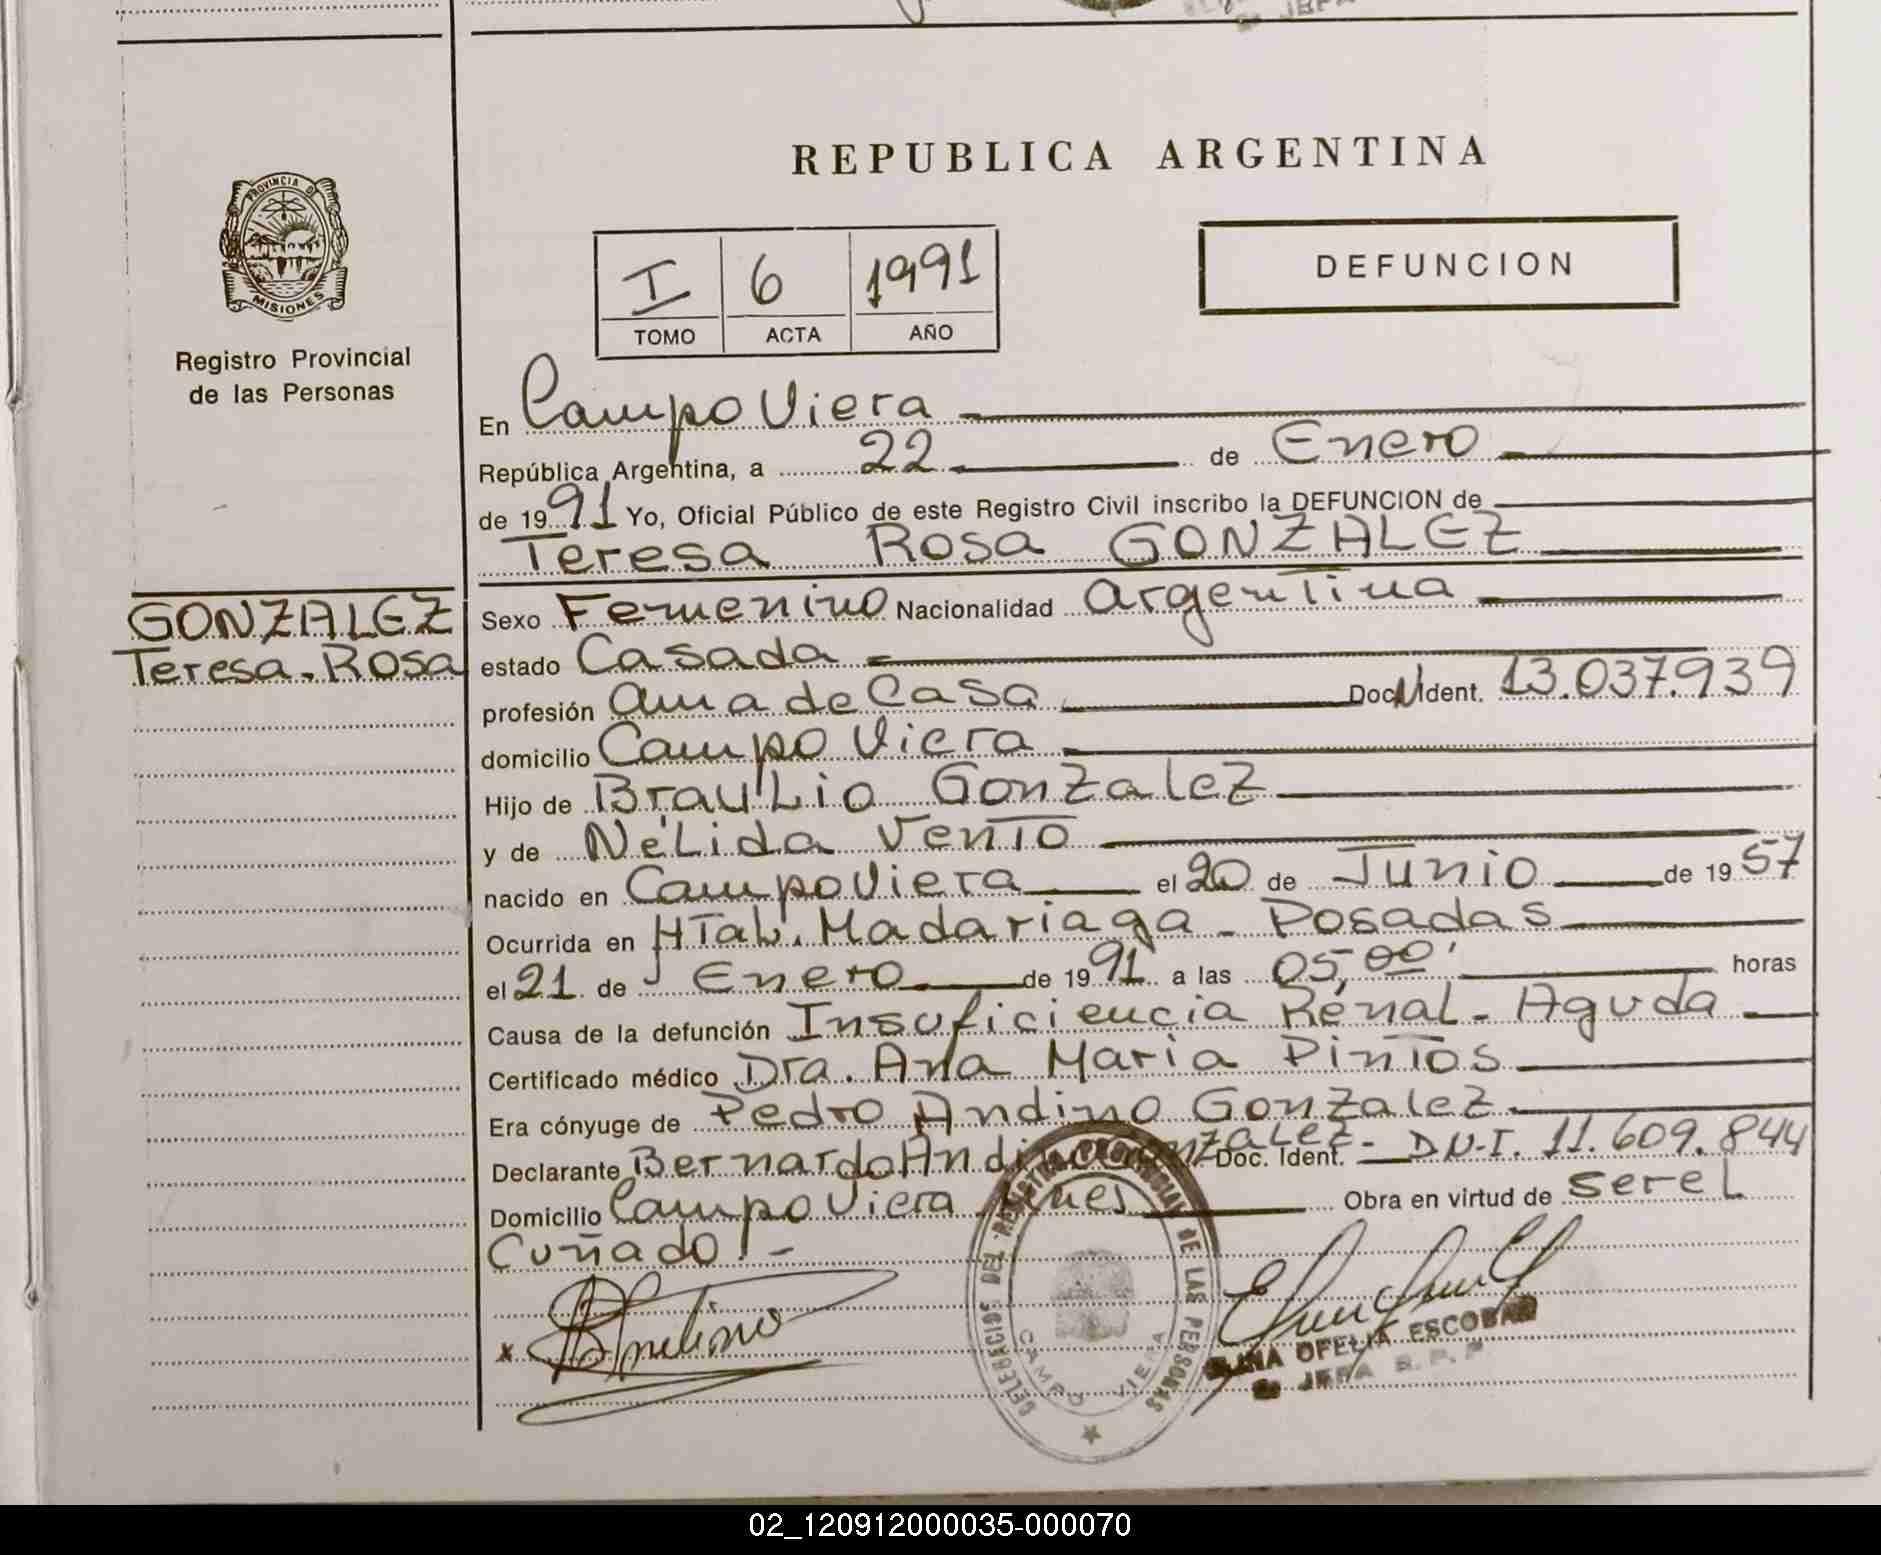 REPUBLICA ARGENTINA
PROVINCIA D
MISIONES
Registro Provincial
de las Personas
I 6 1991
TOMO ACTA AÑO
DEFUNCION
En Campo Viera
República Argentina, a 22 de Enero
de 1991 Yo, Oficial Público de este Registro Civil inscribo la DEFUNCION de
Teresa Rosa GONZALEZ
GONZALEZ
Teresa. Rosa
Sexo Femenino Nacionalidad argentina
estado Casada
profesión ama de Casa Doc. N Ident. 13.037.939
domicilio Campo Viera
Hijo de Braulio Gonzalez
y de Nélida Vento
nacido en Campo Viera el 20 de Junio de 1957
Ocurrida en HTal. Madariaga - Posadas
el 21 de Enero de 1991 a las 05,00' horas
Causa de la defunción Insuficiencia Renal - Aguda
Certificado médico Dra. Ana Maria Pintos
Era cónyuge de Pedro Andino Gonzalez.
Declarante Bernardo Andino Gonzalez - Doc. Ident. D.N.I. 11.609.844
Domicilio Campo Viera Mnes Obra en virtud de ser el
Cuñado.-
x BAndino
DEL REGISTRO PROVINCIAL DE LAS PERSONAS
CAMPO VIERA
OFELIA ESCOBAR
JEFA R. P. P.
JEFA
02_120912000035-000070